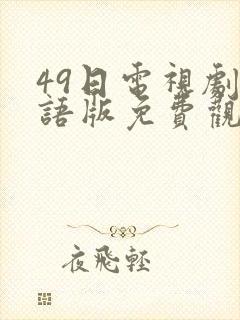 49日電視劇
語版免費觀
夜飛輕